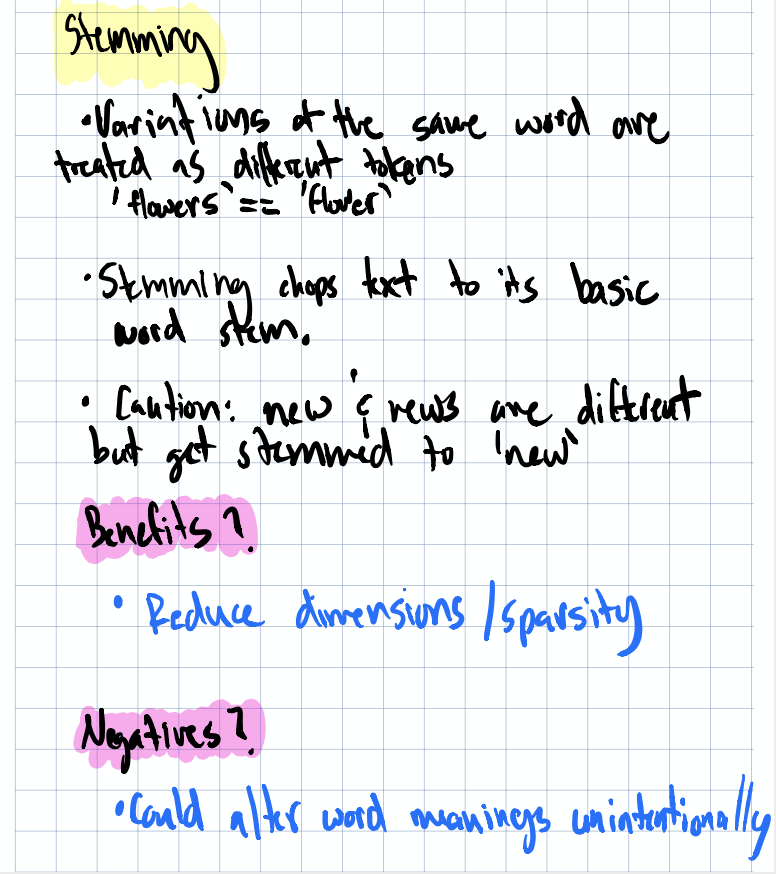 Stemming
• Variations of the same word are
treated as different tokens
'flowers' == 'flower'
• Stemming chops text to its basic
word stem.
• Caution: new & news are different
but get stemmed to 'new'
Benefits?
• Reduce dimensions/sparsity
Negatives?
• Could alter word meanings unintentionally